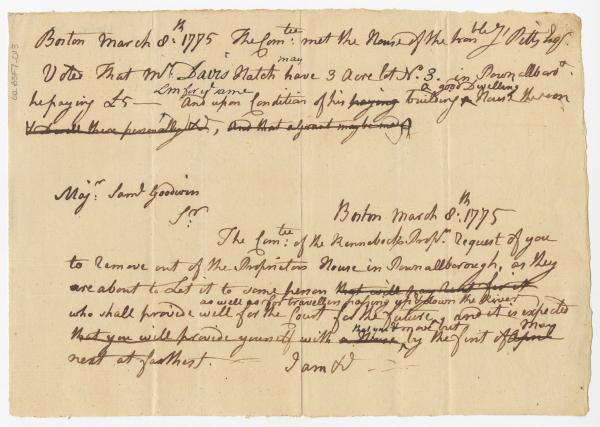 Boston March 8th: 1775 The Comtee: met at the House of the Honble Js Pitts Esqr.
may
Voted That Mr. Davis Hatch have 3 Acre lot No. 3. in Pownallboro
Lm for ye same a good Dwelling
he paying £5 — And upon Condition of his paying building a House thereon
& dwell there personally &c, And that a grant may be made
Majr. Saml Goodwin
Sr
Boston March 8th: 1775
The Comtee: of the Kennebeck Proprs. request of you
to remove out of the Proprietors House in Pownallborough, as they
are about to Let it to some person that will pay rent for it
as well as for travellers passing up & down the River
who shall provide well for the Court for the future, and it is expected
that you & move out
that you will provide yourself with a House by the first of April May
next at farthest. — I am &c —